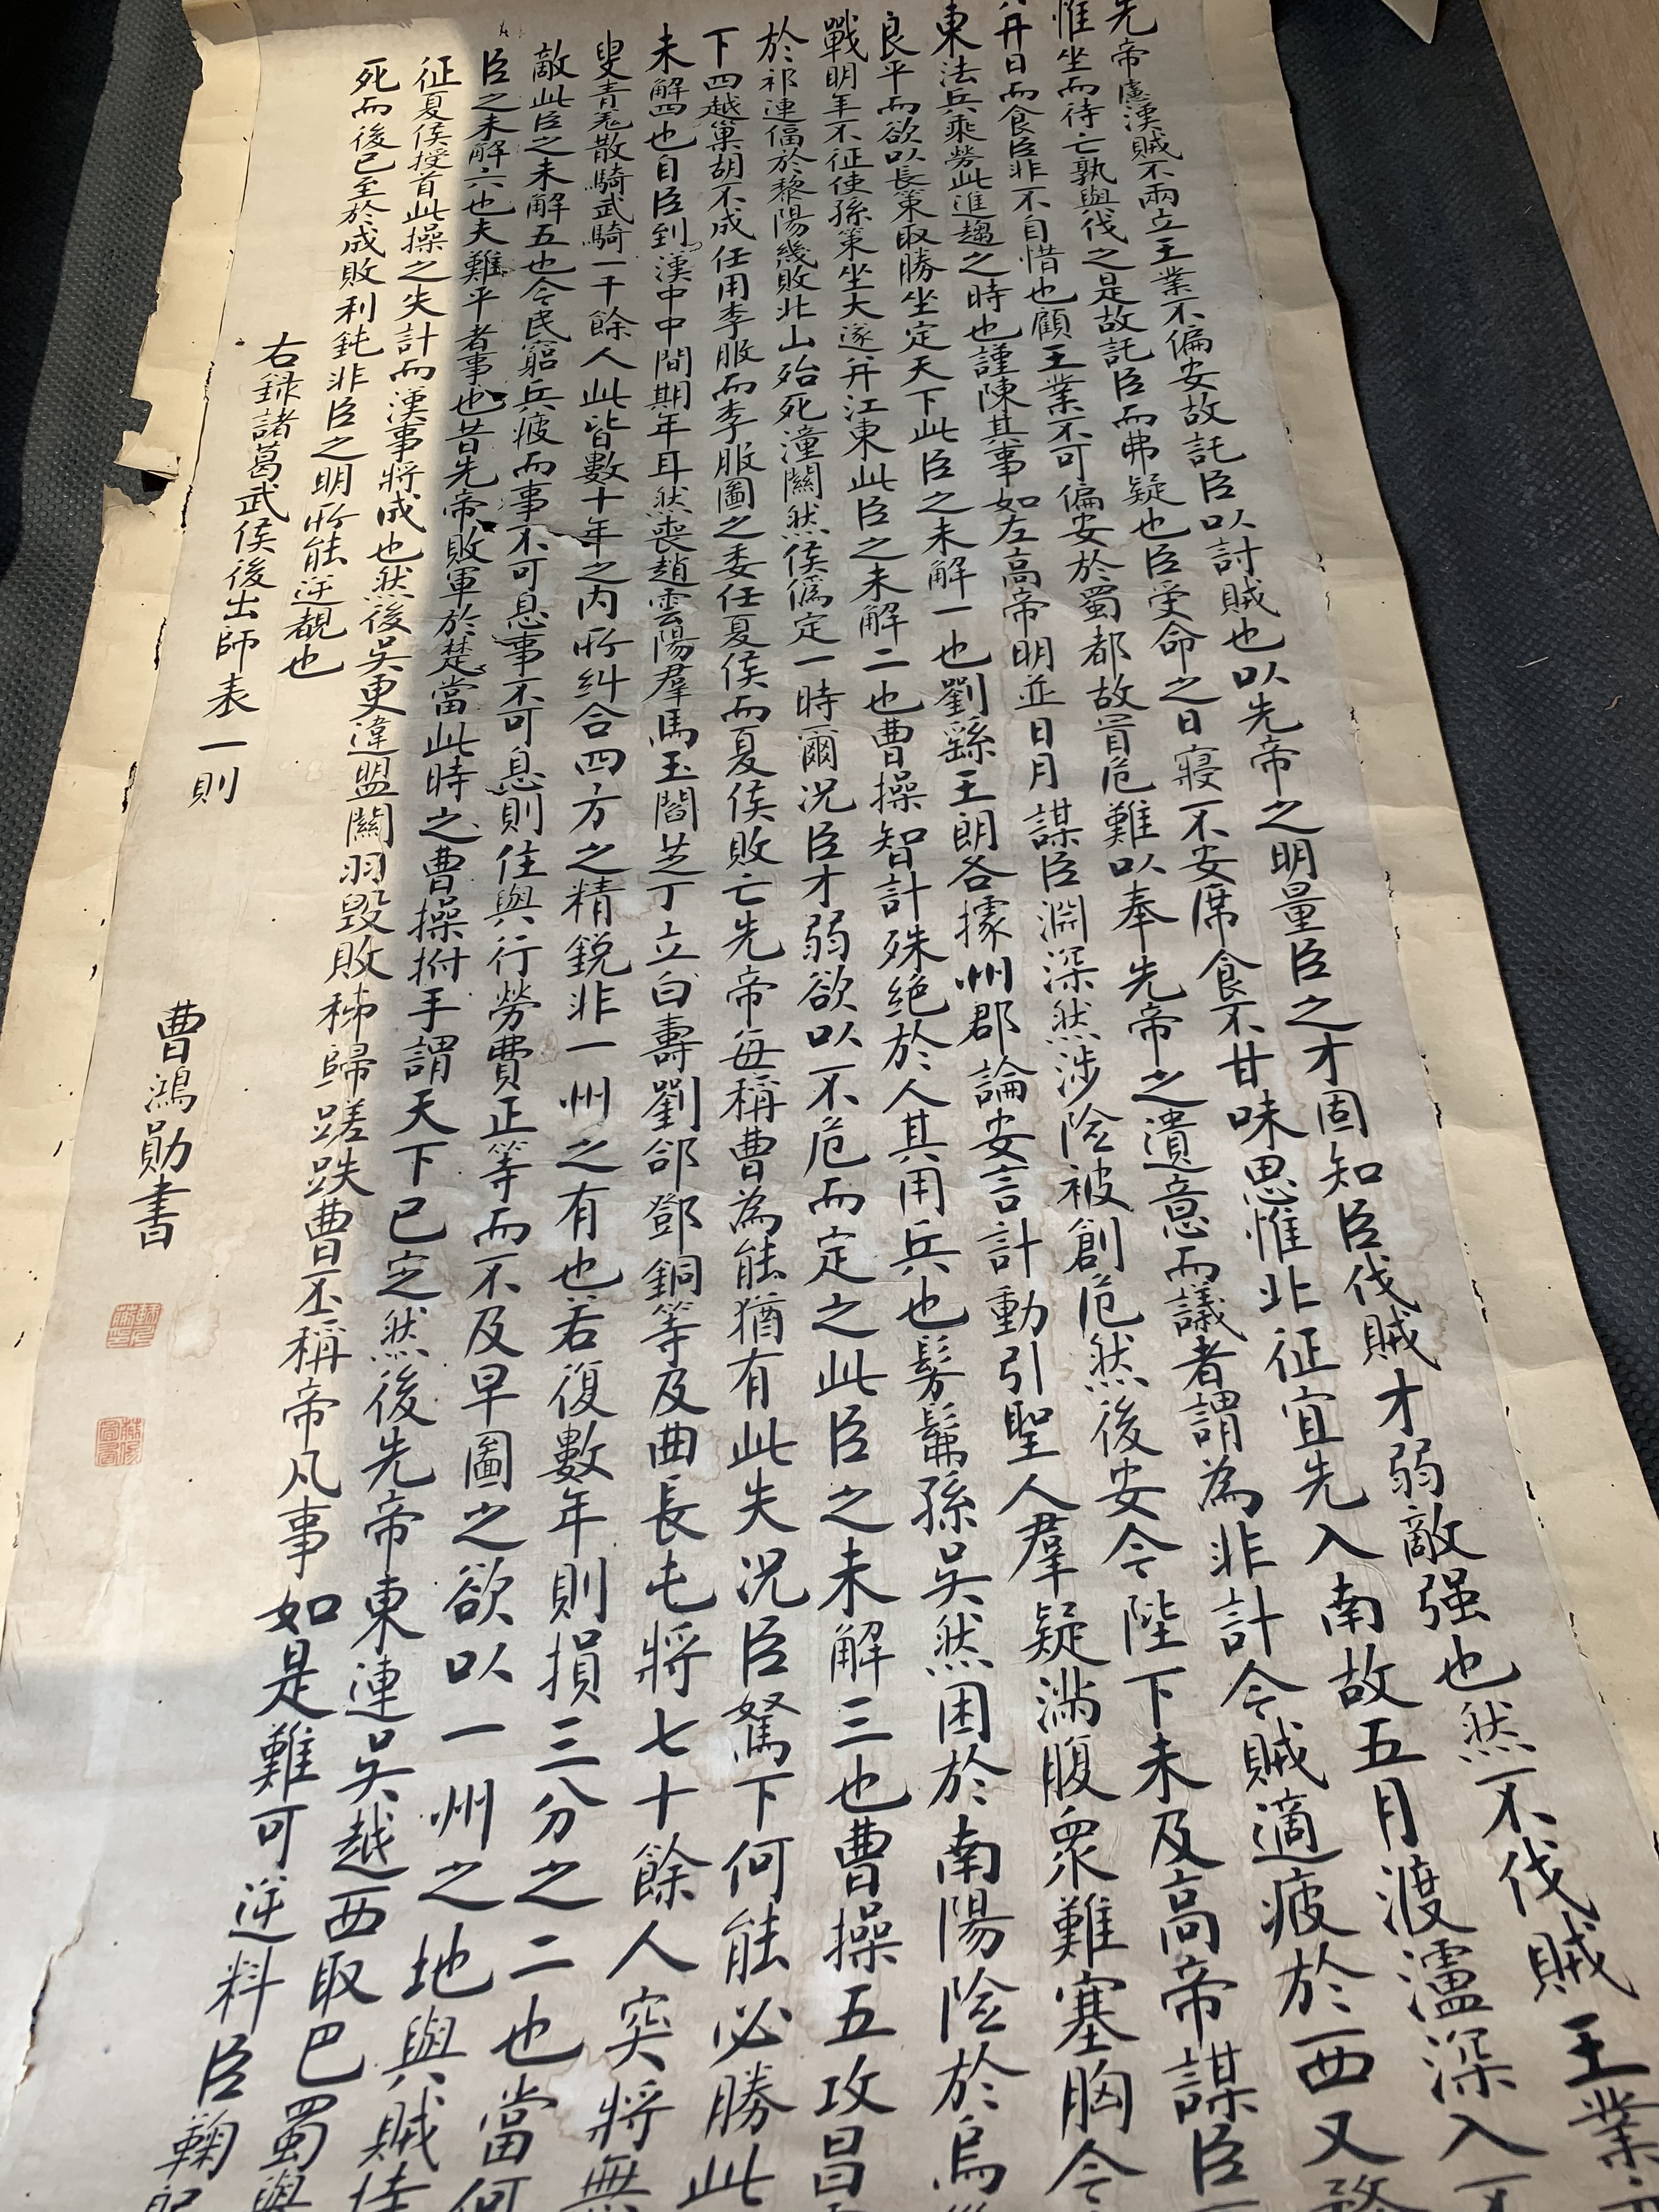 先帝慮漢賊不兩立王業不偏安故託臣以討賊也以先帝之明量臣之才固知臣伐賊才弱敵强也然不伐賊王業
惟坐而待亡孰與伐之是故託臣而弗疑也臣受命之日寢不安席食不甘味思惟北征宜先入南故五月渡瀘深入不
并日而食臣非不自惜也顧王業不可偏安於蜀都故冒危難以奉先帝之遺意而議者謂為非計今賊適疲於西又務
東法兵乘勞此進趨之時也謹陳其事如左高帝明並日月謀臣淵深然涉險被創危然後安今陛下未及高帝謀臣
良平而欲以長策取勝坐定天下此臣之未解一也劉繇王朗各據州郡論安言計動引聖人羣疑滿腹眾難塞胸今
戰明年不征使孫策坐大遂并江東此臣之未解二也曹操智計殊絕於人其用兵也髣髴孫吳然困於南陽險於烏
於祁連偪於黎陽幾敗北山殆死潼關然後偽定一時爾況臣才弱欲以不危而定之此臣之未解三也曹操五攻昌
下四越巢胡不成任用李服而李服圖之委任夏侯而夏侯敗亡先帝每稱曹為能猶有此失況臣駑下何能必勝此
未解四也自臣到漢中中間期年耳然喪趙雲陽羣馬玉閻芝丁立白壽劉郃鄧銅等及曲長屯將七十餘人突將無
叟青羌散騎武騎一千餘人此皆數十年之內所糾合四方之精銳非一州之有也若復數年則損三分之二也當何
敵此臣之未解五也今民窮兵疲而事不可息事不可息則住與行勞費正等而不及早圖之欲以一州之地與賊
臣之未解六也夫難平者事也昔先帝敗軍於楚當此時之曹操拊手謂天下已定然後先帝東連吳越西取巴蜀
征夏侯授首此操之失計而漢事將成也然後吳更違盟關羽毀敗秭歸蹉跌曹丕稱帝凡事如是難可逆料臣鞠
死而後已至於成敗利鈍非臣之明所能逆覩也
右録諸葛武侯後出師表一則
曹鴻勛書